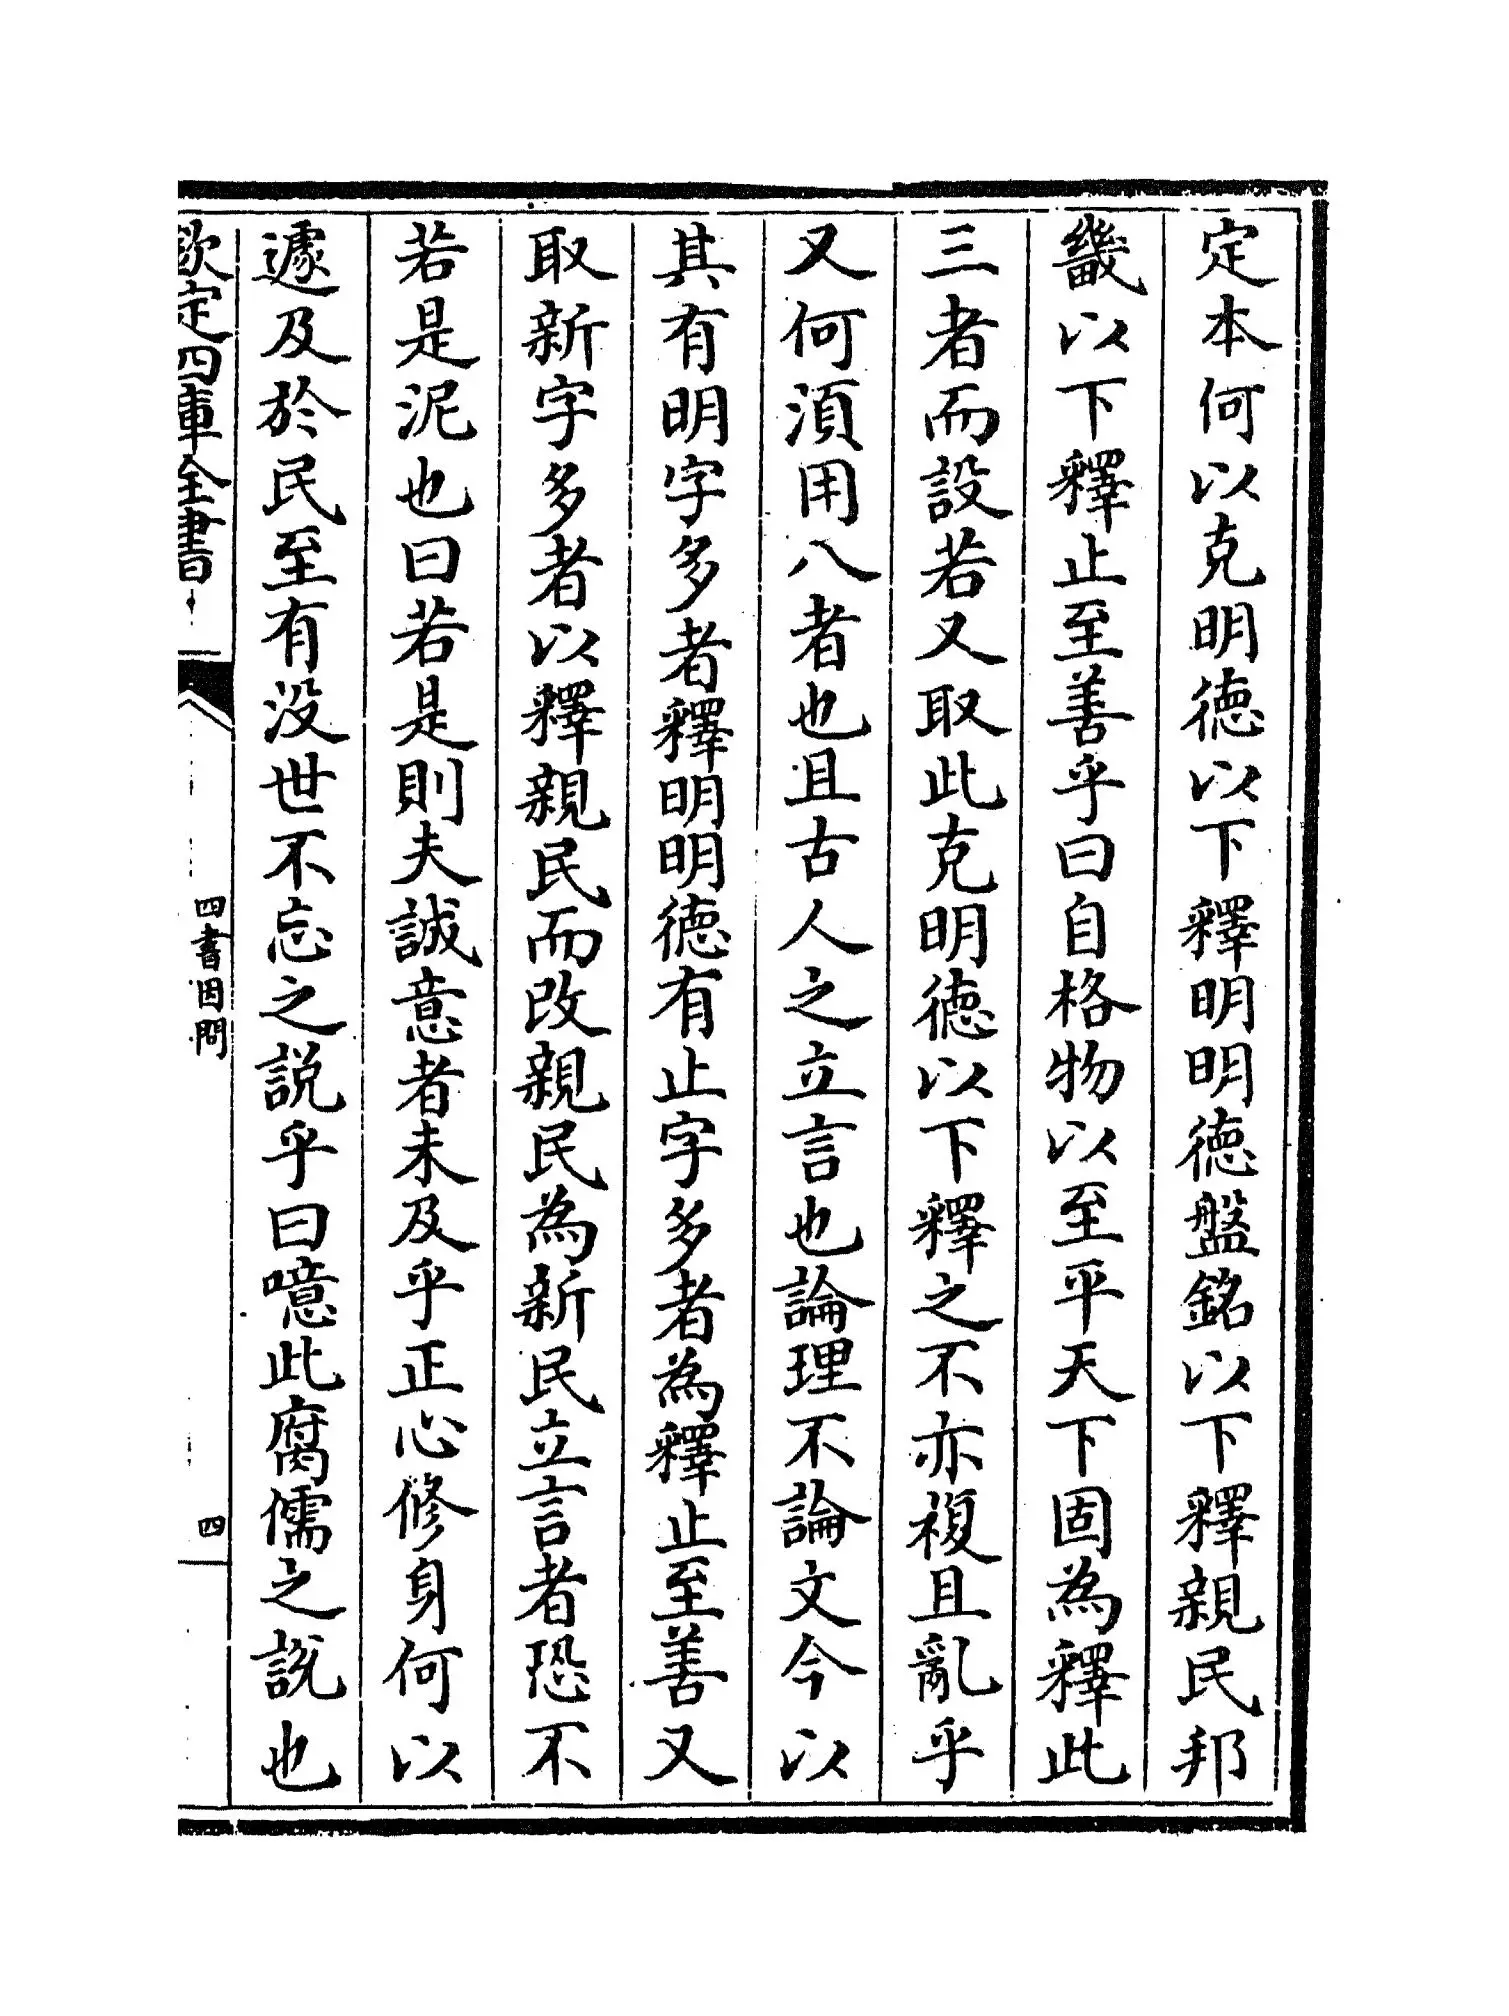 定本何以克明德以下釋明明德盤銘以下釋親民邦
畿以下釋止至善乎曰自格物以至平天下固為釋此
三者而設若又取此克明德以下釋之不亦複且亂乎
又何湏用八者也且古人之立言也論理不論文今以
其有明字多者釋明明德有止字多者為釋止至善又
取新字多者以釋親民而改親民為新民立言者恐不
若是泥也曰若是則夫誠意者未及乎正心修身何以
遽及於民至有没世不忘之説乎曰噫此腐儒之説也
欽定四庫全書
四書因問
四